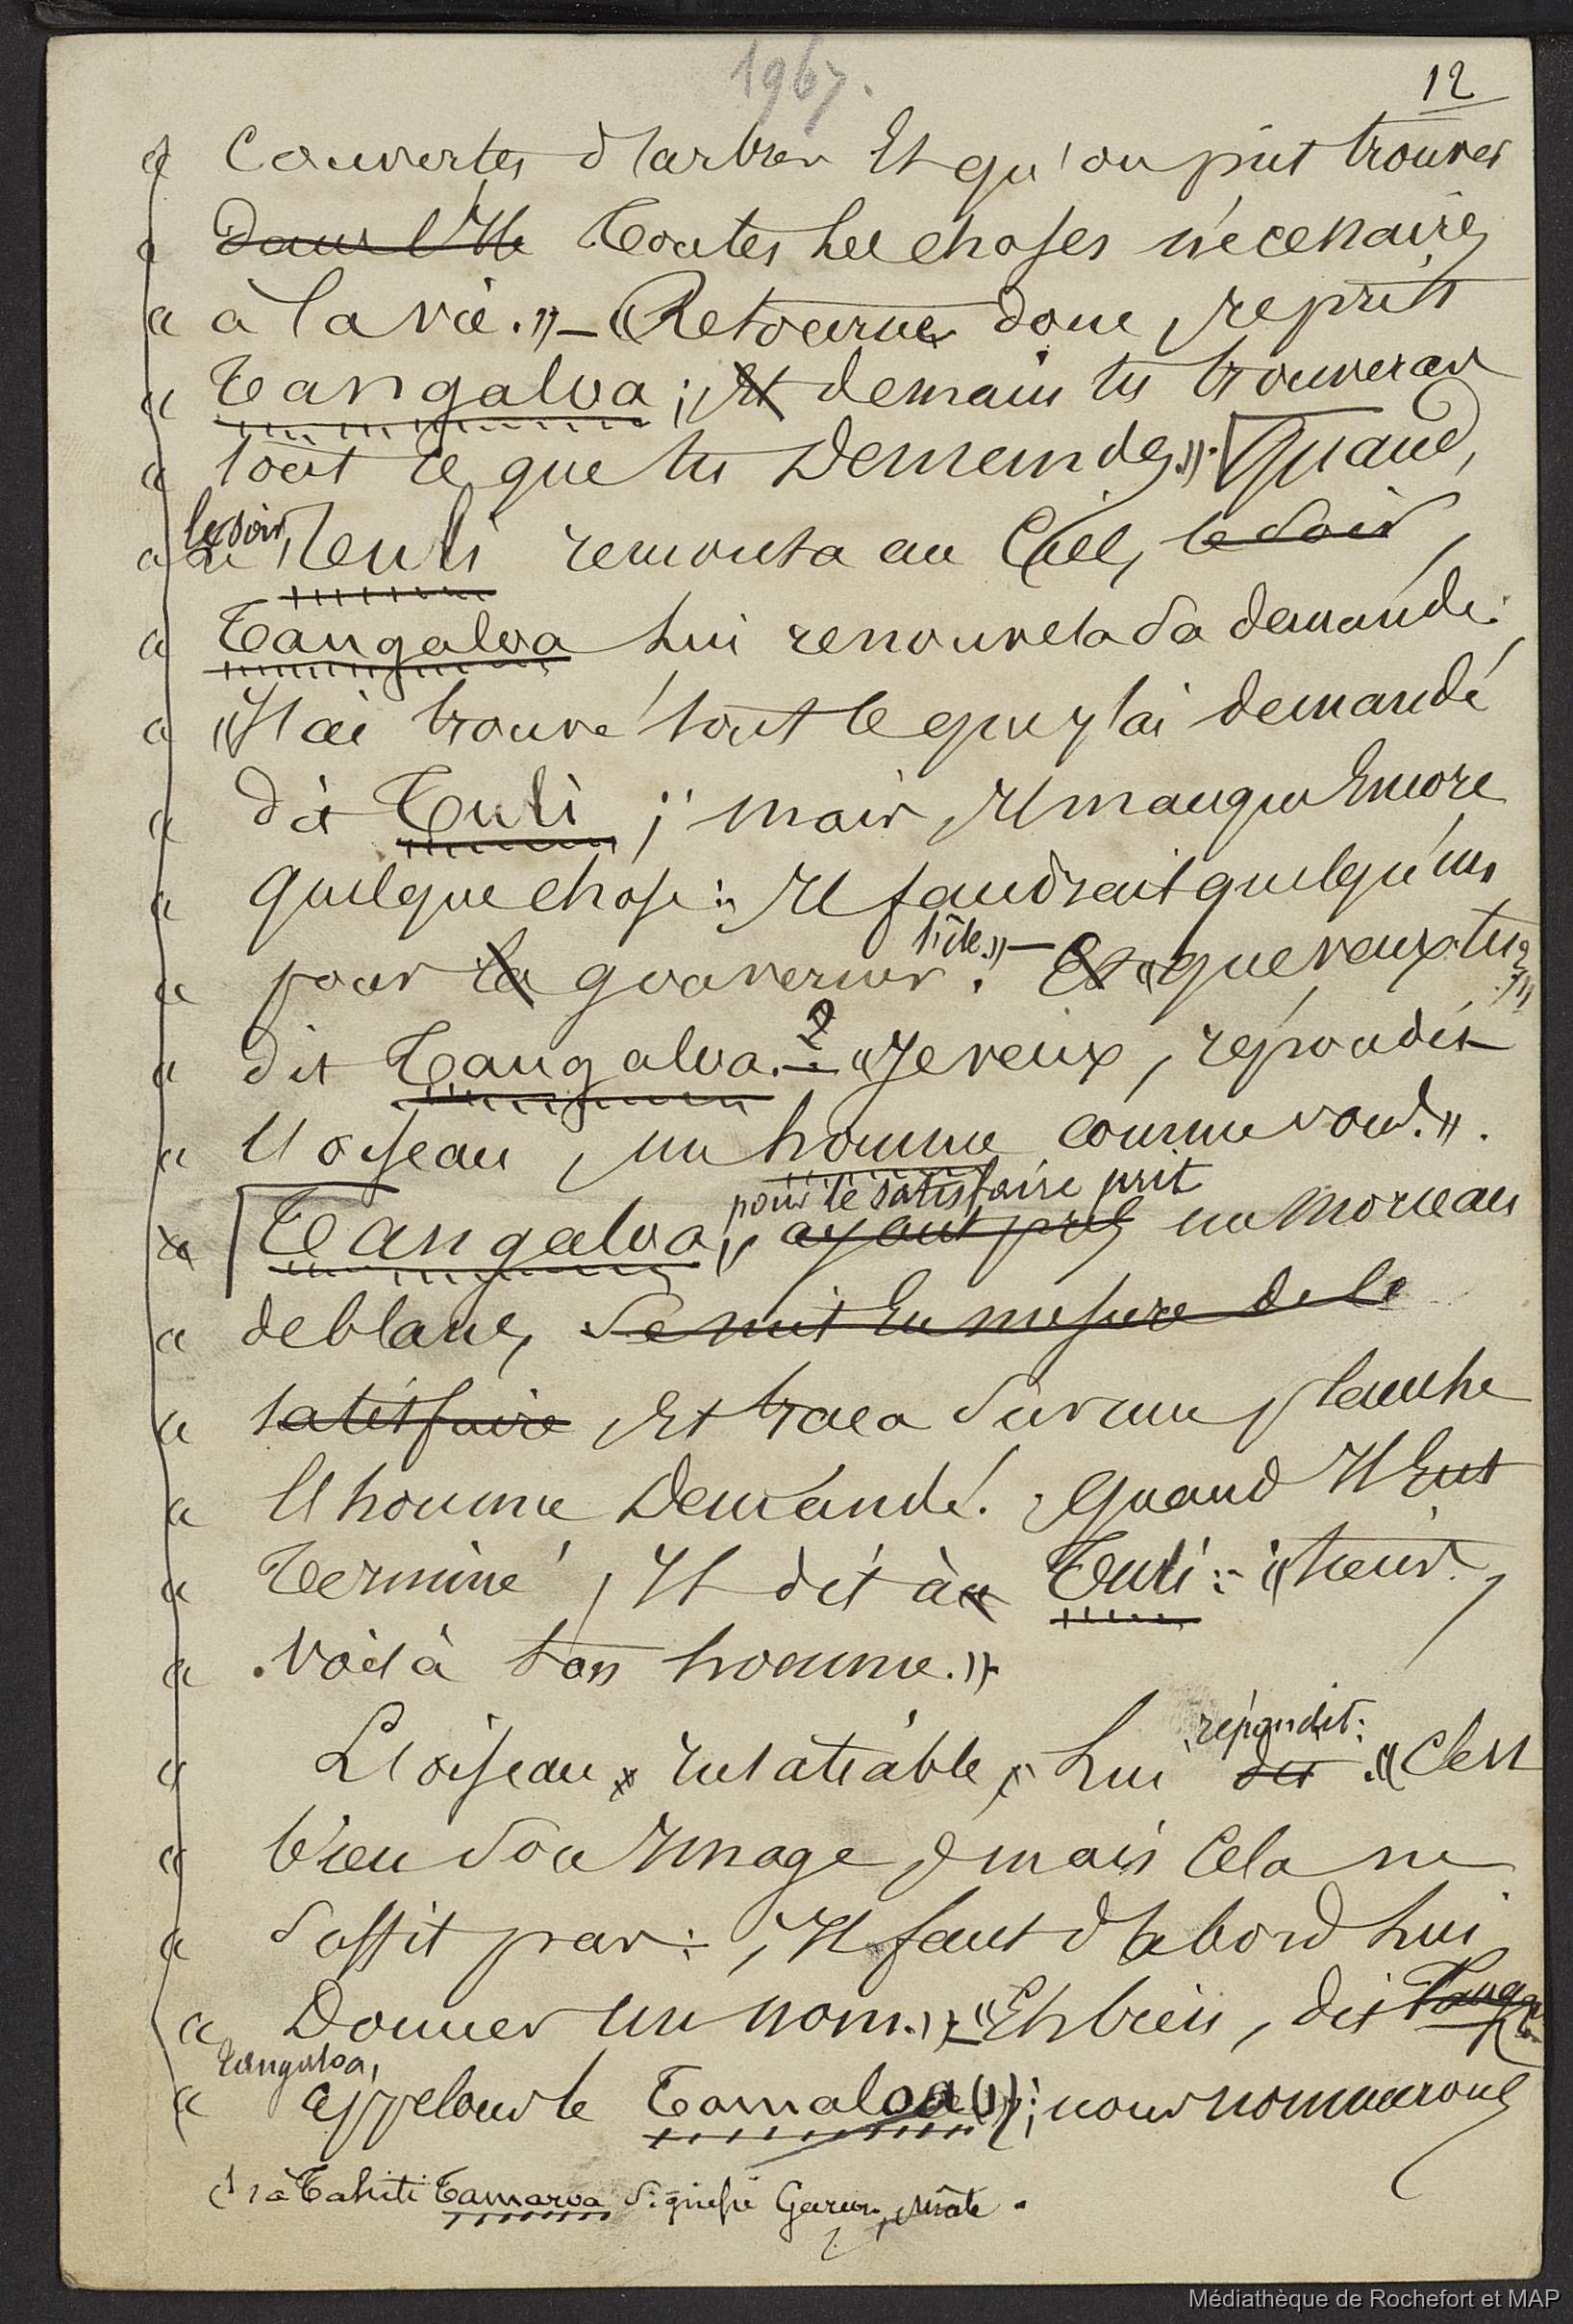 1967.
12
« Couvertes d'arbres Et qu'on put trouver
« dans l'Ile Toutes les choses nécessaires
« à la vie. » — « Retourne donc, reprit
« Tangaloa ; Et demain tu trouveras
« tout ce que tu Demandes ». Quand,
« le soir, Tuli remonta au Ciel, le soir,
« Tangaloa lui renouvela sa demande.
« « J'ai trouvé tout ce que j'ai demandé
« dit Tuli ; mais il manque Encore
« quelque chose : Il faudrait quelqu'un
« pour la gouverner l'île. » — Et « que veux-tu ? »
« dit Tangaloa. — « Je veux, répondit
« l'oiseau, un homme comme vous. ».
« Tangaloa, pour le satisfaire prit ayant pris un morceau
« de blanc, se mit En mesure de le
« satisfaire Et traça sur une planche
« l'homme Demandé. Quand Il Eut
« Terminé, Il dit à Tuli : « tiens,
« voilà ton homme. »
« L'oiseau, insatiable, lui répondit : dit « C'est
« bien son Image, mais Cela ne
« suffit pas : Il faut d'abord lui
« Donner un nom. » — « Eh bien, dit Tanga
« Tangaloa, appelons le Tamaloa (1) ; nous nommerons
(1) à Tahiti Tamaroa signifie Garçon, mâle.
Médiathèque de Rochefort et MAP